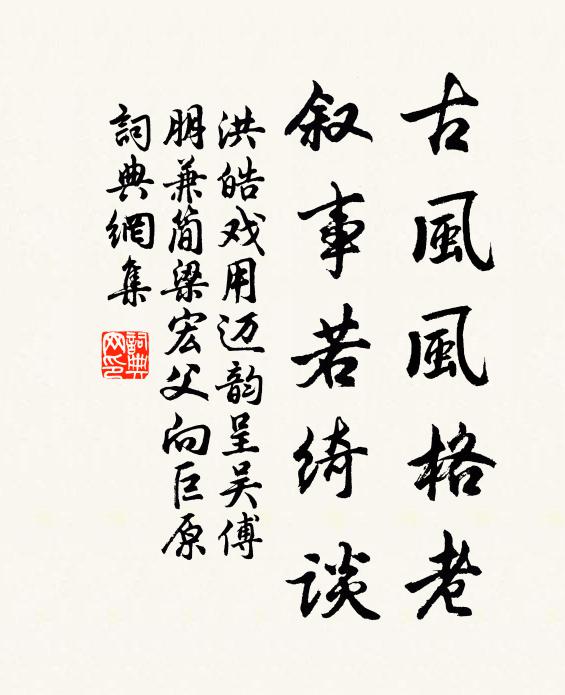 古風風格老
叙事若绮谈
洪皓戏用迈韵呈吴傅
朋兼简梁宏父向巨原
詞典網集
詞典网印